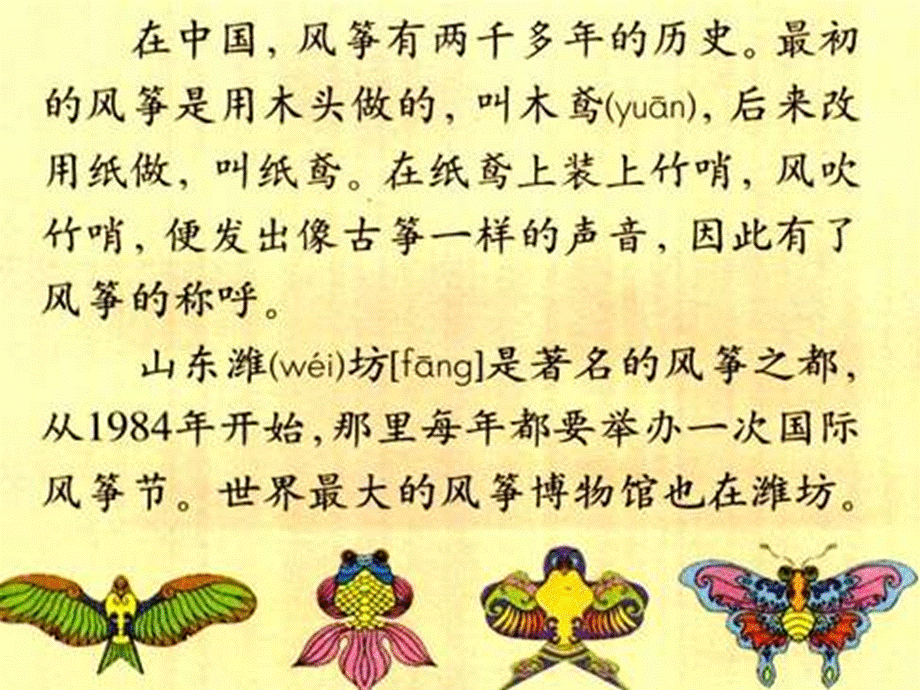 在中国，风筝有两千多年的历史。最初
的风筝是用木头做的，叫木鸢(yuān)，后来改
用纸做，叫纸鸢。在纸鸢上装上竹哨，风吹
竹哨，便发出像古筝一样的声音，因此有了
风筝的称呼。
山东潍(wéi)坊[fāng]是著名的风筝之都，
从1984年开始，那里每年都要举办一次国际
风筝节。世界最大的风筝博物馆也在潍坊。